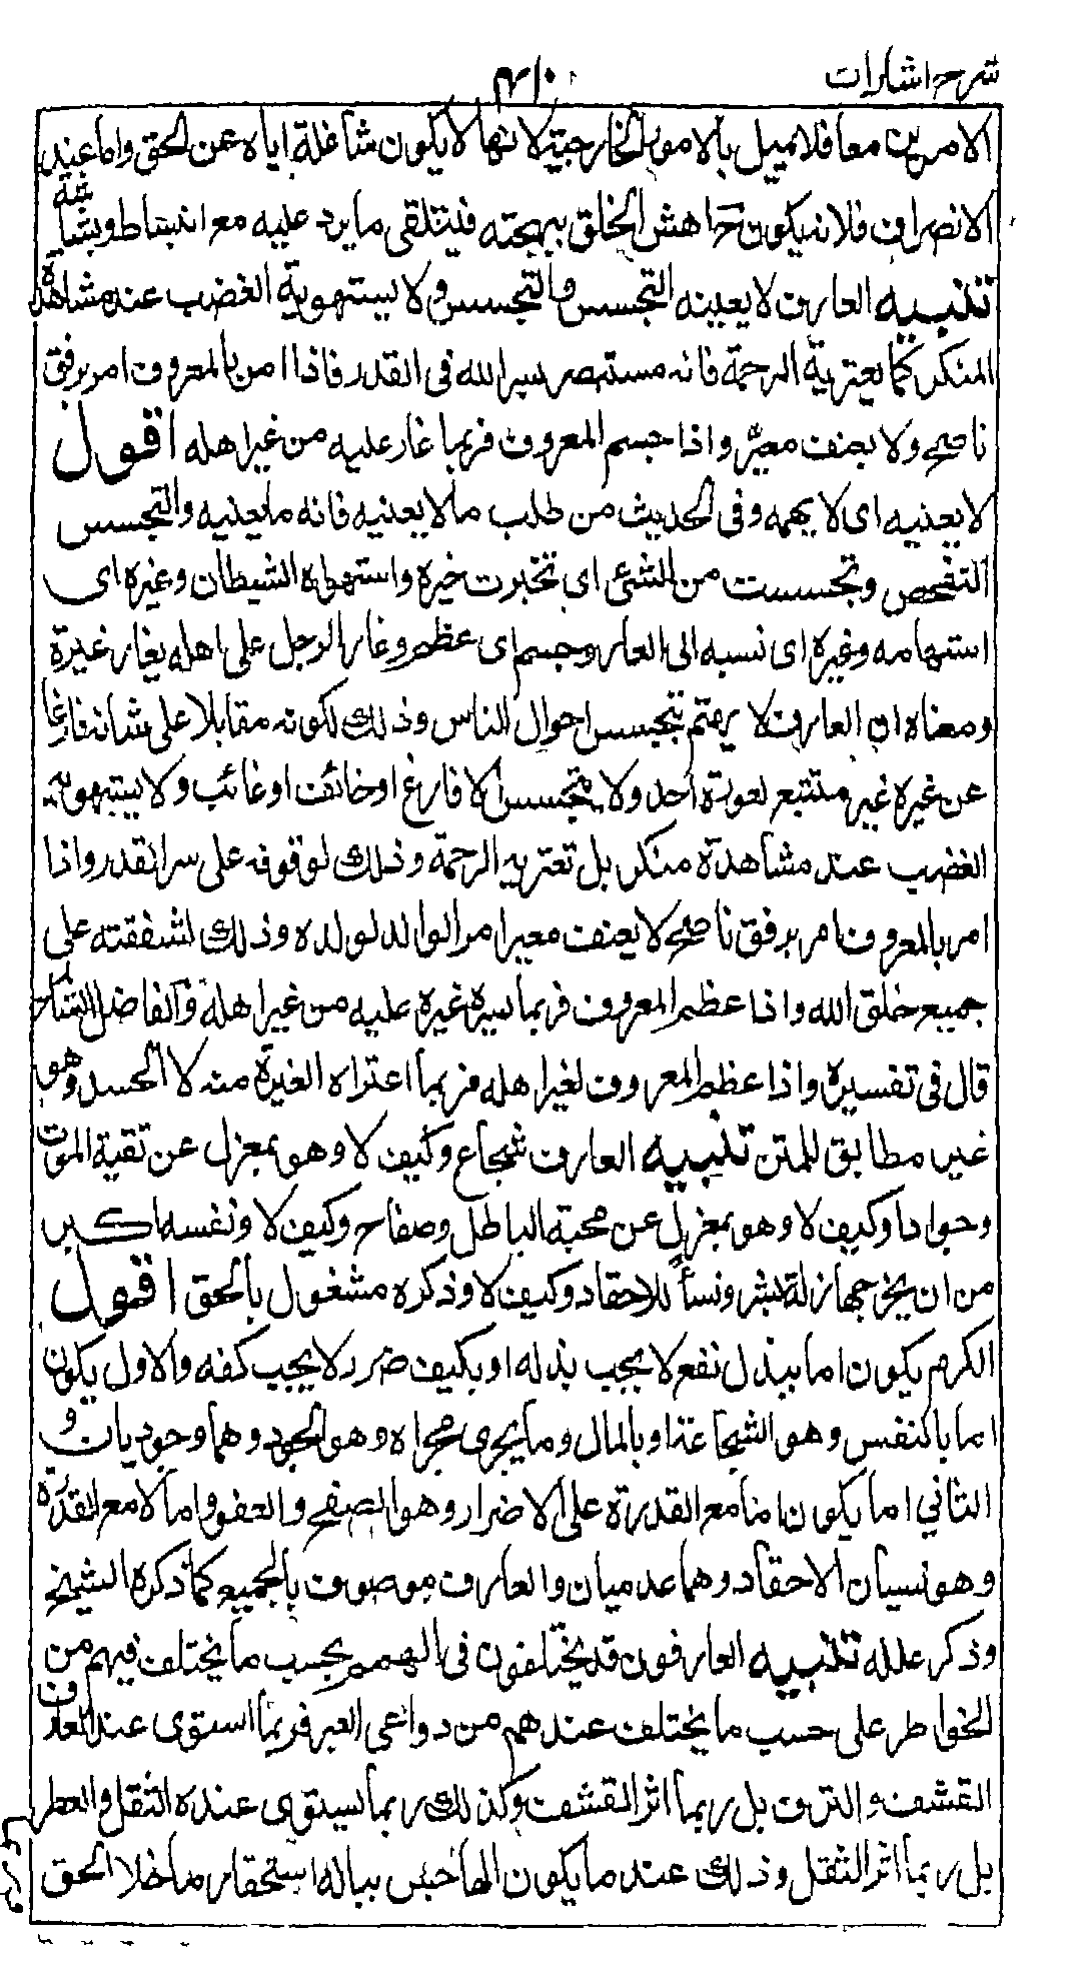 شرح اشارات
الامرين معا فلا يميل بالامور الخارجية لانها لا يكون شاغلة اياه عن الحق واما عند
الانصراف فلانه يكون ح اهش الخلق ببهجته فيتلقى ما يرد عليه مع انبساط وبشاشة
تنبيه العارف لا يعينه التجسس والتحسس ولا يستهويه الغضب عند مشاهدة
المنكر كما يعتريه الرحمة فانه مستبصر بسر الله في القدر فاذا امر بالمعروف امر برفق
ناصح ولا بعنف معير واذا جسم المعروف فربما غار عليه من غير اهله اقول
لا يعنيه اى لا يهمه وفى الحديث من طلب ما لا يعنيه فاته ما يعنيه والتجسس
التفحص وتحسست من الشئ اى تخبرت خبره واستهواه الشيطان وغيره اى
استهامه وغيره اى نسبه الى العار وجسم اى عظم وغار الرجل على اهله يغار غيرة
ومعناه ان العارف لا يهتم بتجسس احوال الناس وذلك لكونه مقابلا على شانه فارغا
عن غيره غير متتبع لعورة احد ولا يتجسس الا فارغ او خائف او غائب ولا يستهويه
الغضب عند مشاهدة منكر بل تعتريه الرحمة وذلك لوقوفه على سر القدر واذا
امر بالمعروف امر برفق ناصح لا بعنف معير امر الوالد لولده وذلك لشفقته على
جميع خلق الله واذا عظم المعروف فربما يسره غيرة عليه من غير اهله والفاضل الشارح
قال في تفسيره واذا عظم المعروف لغير اهله فربما اعتراه الغيرة منه لا الحسد وهو
غير مطابق للمتن تنبيه العارف شجاع وكيف لا وهو بمعزل عن تقية الموت
وجواد وكيف لا وهو بمعزل عن محبة الباطل وصفاح وكيف لا ونفسه اكبر
من ان يخرجها زلة بشر ونساء للاحقاد وكيف لا وذكره مشغول بالحق اقول
الكرم يكون اما ببذل نفع لا يجب بذله او بكيف ضرر لا يجب كفه والاول يكون
اما بالنفس وهو الشجاعة او بالمال وما يجرى مجراه وهو الجود وهما وجوديان و
الثاني اما يكون اما مع القدرة على الاضرار وهو الصفح والعفو واما لا مع القدرة
وهو نسيان الاحقاد وهما عدميان والعارف موصوف بالجميع كما ذكره الشيخ
وذكر علله تنبيه العارفون قد يختلفون فى الهمم بحسب ما يختلف فيهم من
الخواطر على حسب ما يختلف عندهم من دواعى العبر فربما استوى عند العارف
القشف والترف بل ربما اثر القشف وكذلك ربما يستوى عنده الثقل والعطر
بل ربما اثر الثقل وذلك عند ما يكون الهاجس بباله استحقار ما خلا الحق